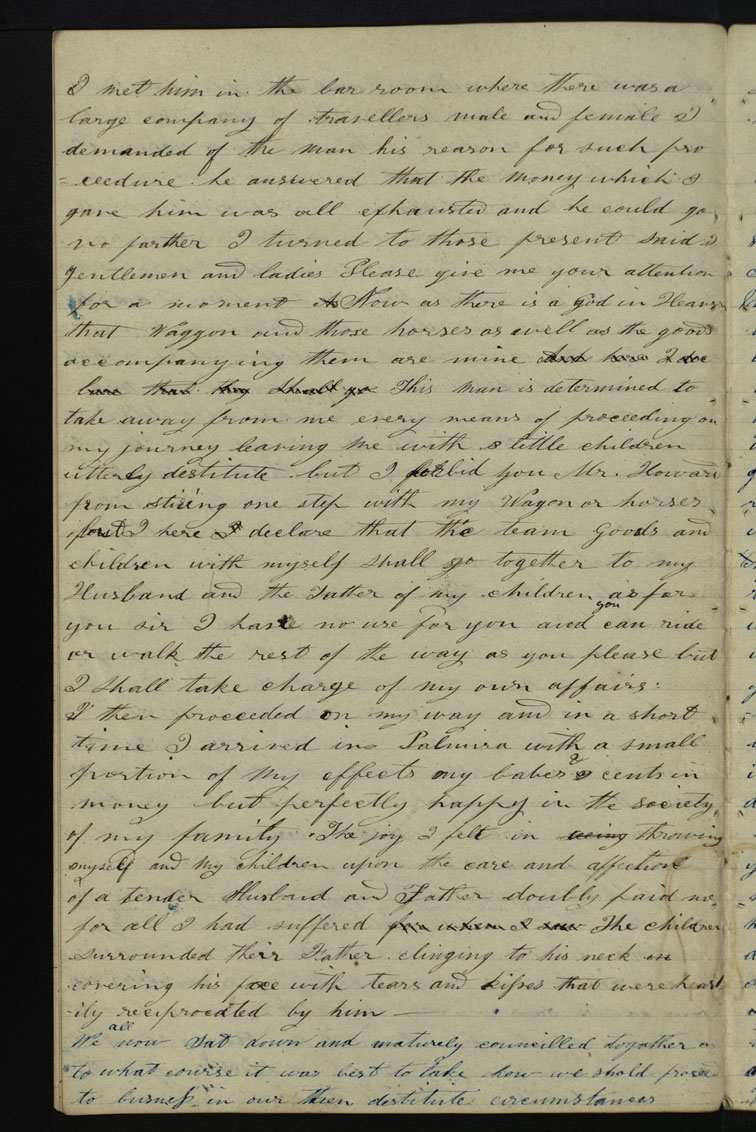 I met him in the bar room where there was a
large company of travellers male and female I
demanded of the man his reason for such pro
=ceedure he answered that the money which I
gave him was all exhausted and he could go
no farther I turned to those present said I
gentlemen and ladies Please give me your attention
for a moment Now as there is a god in Heaven
that Waggon and those horses as well as the goods
accompanying them are mine and here I dec
lare that they shall go This man is determined to
take away from me every means of proceeding on
my journey leaving me with 8 little children
utterly destitute but I forbid you Mr. Howard
from stiring one step with my Wagon or horses
I here declare that the team Goods and
children with myself shall go together to my
Husband and the Father of my children as for
you sir I have no use for you and you can ride
or walk the rest of the way as you please but
I shall take charge of my own affairs:
I then proceeded on my way and in a short
time I arrived in Palmira with a small
portion of my effects my babes & 2 cents in
money but perfectly happy in the society
of my family. The joy I felt in throwing
myself and My children upon the care and affection
of a tender Husband and Father doubly paid me
for all I had suffered for whom I saw The children
surrounded their Father clinging to his neck
covering his face with tears and kisses that were heart
-ily reciprocated by him —
We all now Sat down and maturely councilled togather as
to what course it was best to take how we shold proceed
to buness in our then destitute circumstances